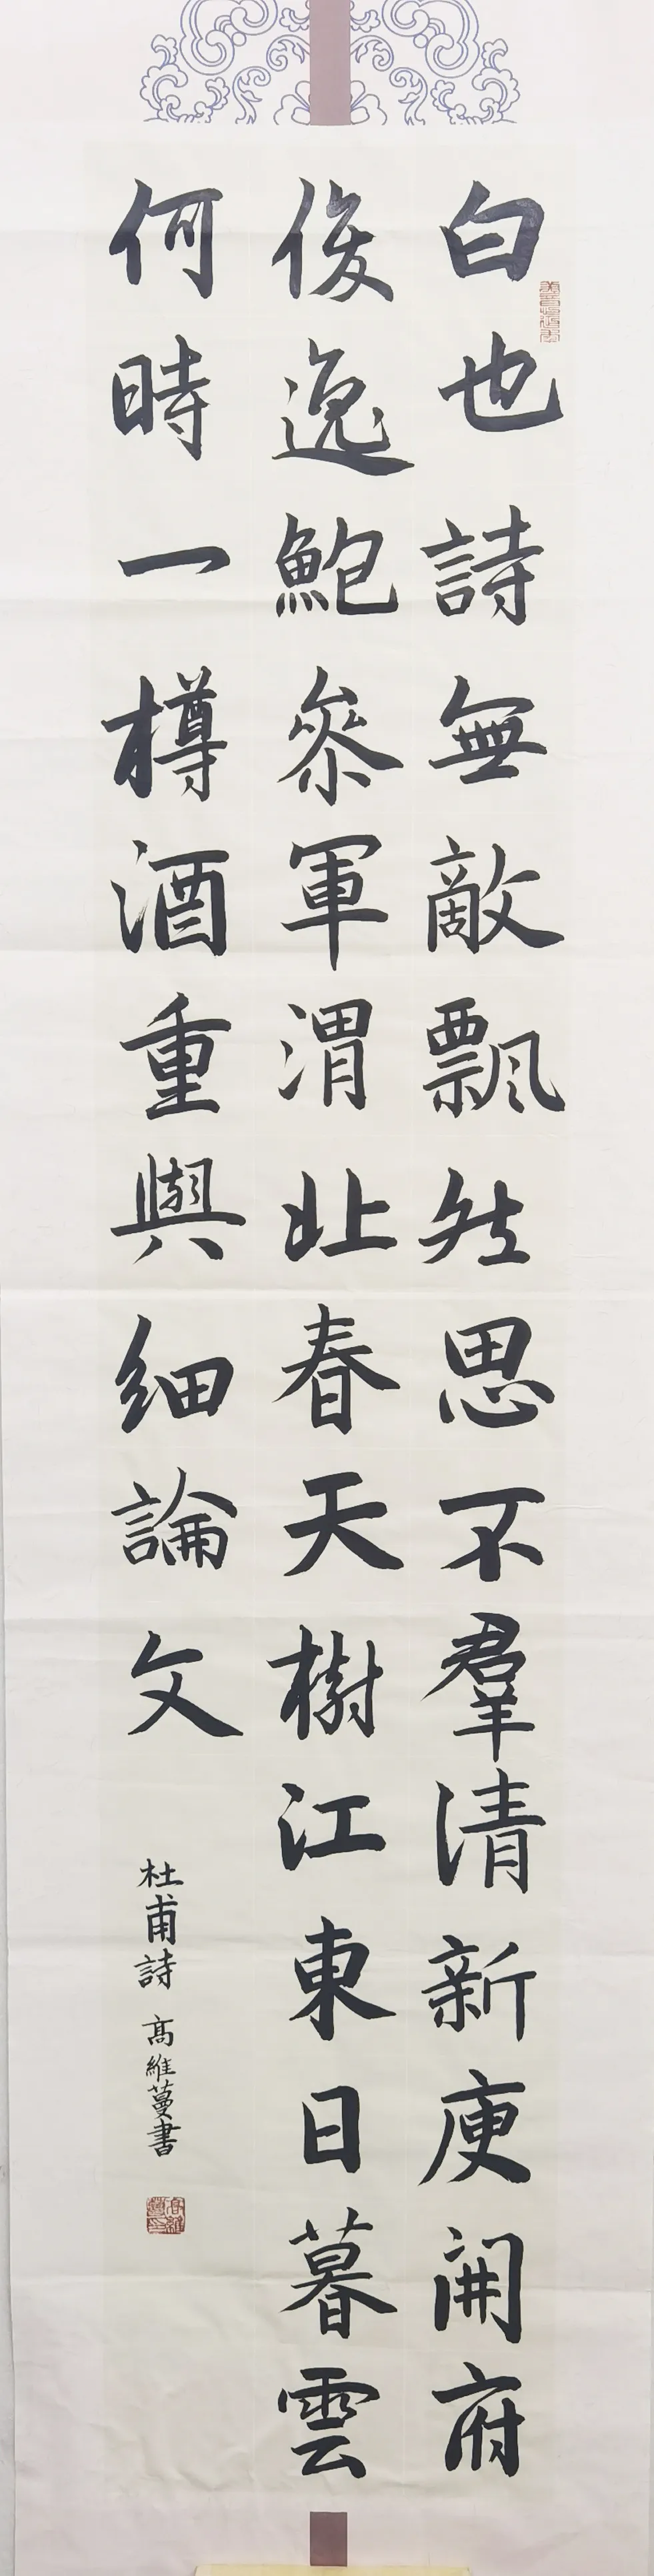 白也詩無敵飄然思不羣清新庾開府
俊逸鮑參軍渭北春天樹江東日暮雲
何時一樽酒重與細論文
杜甫詩 高維蔓書